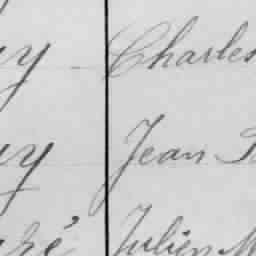 y Charles
y Jean
ré Julien M